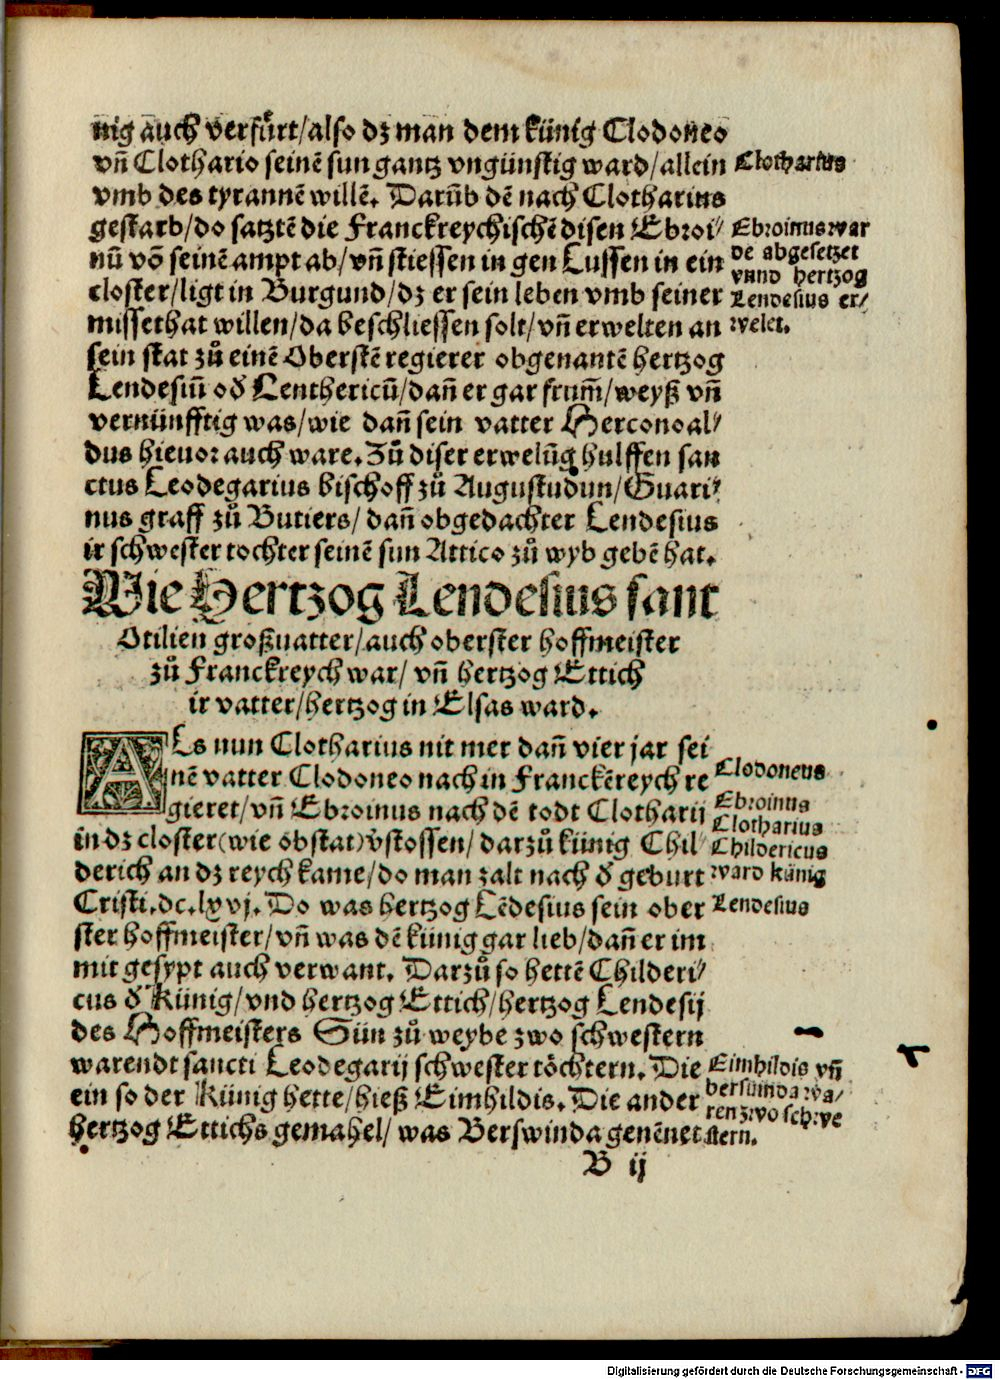 nig auch verfürt/also dz man dem künig Clodoneo
vñ Clothario seinē sun gantz vngünstig ward/allein
vmb des tyrannē willē. Darūb dē nach Clotharius
gestarb/do satztē die Franckreychischē disen Ebroi⸗
nū vō seinē ampt ab/vñ stiessen in gen Lussen in ein
closter/ligt in Burgund/dz er sein leben vmb seiner
missethat willen/da beschliessen solt/vñ erwelten an
sein stat zů einē Oberstē regierer obgenantē hertzog
Lendesiū oď Lenthericū/dañ er gar frum̄/weyß vñ
vernünfftig was/wie dañ sein vatter Herconoal⸗
dus hieuor auch ware. Zů diser erwelūg hulffen san
ctus Leodegarius bischoff zů Augustudun/Guari⸗
nus graff zů Butiers/dañ obgedachter Lendesius
ir schwester tochter seinē sun Attico zů wyb gebē hat.
Clotharius
Ebroinus war
de abgesetzet
vnnd hertzog
Lendesius er⸗
welet.
Wie Hertzog Lendesius sant
Otilien großuatter/auch oberster hoffmeister
zů Franckreych war/vñ hertzog Ettich
ir vatter/hertzog in Elsas ward.
ALs nun Clotharius nit mer dañ vier jar sei
nē vatter Clodoneo nach in Franckēreych re
gieret/vñ Ebroinus nach dē todt Clotharij
in dz closter(wie obstat)v̄stossen/darzů künig Chil⸗
derich an dz reych kame/do man zalt nach ď geburt
Cristi.dc.lxvj. Do was hertzog Lēdesius sein ober
ster hoffmeister/vñ was dē künig gar lieb/dañ er im
mit gesypt auch verwant. Darzů so hettē Childeri⸗
cus ď Künig/vnd hertzog Ettich/hertzog Lendesij
des Hoffmeisters Sün zů weybe zwo schwestern
warendt sancti Leodegarij schwester töchtern. Die
ein so der Künig hette/hieß Eimhildis. Die ander
hertzog Ettichs gemahel/was Berswinda genēnet
Clodoneus
Ebroinus
Clotharius
Childericus
ward künig
Lendesius
Eimhildis vñ
bersuinda wa⸗
ren zwo schwe
stern.
B ij
Digitalisierung gefördert durch die Deutsche Forschungsgemeinschaft - DFG